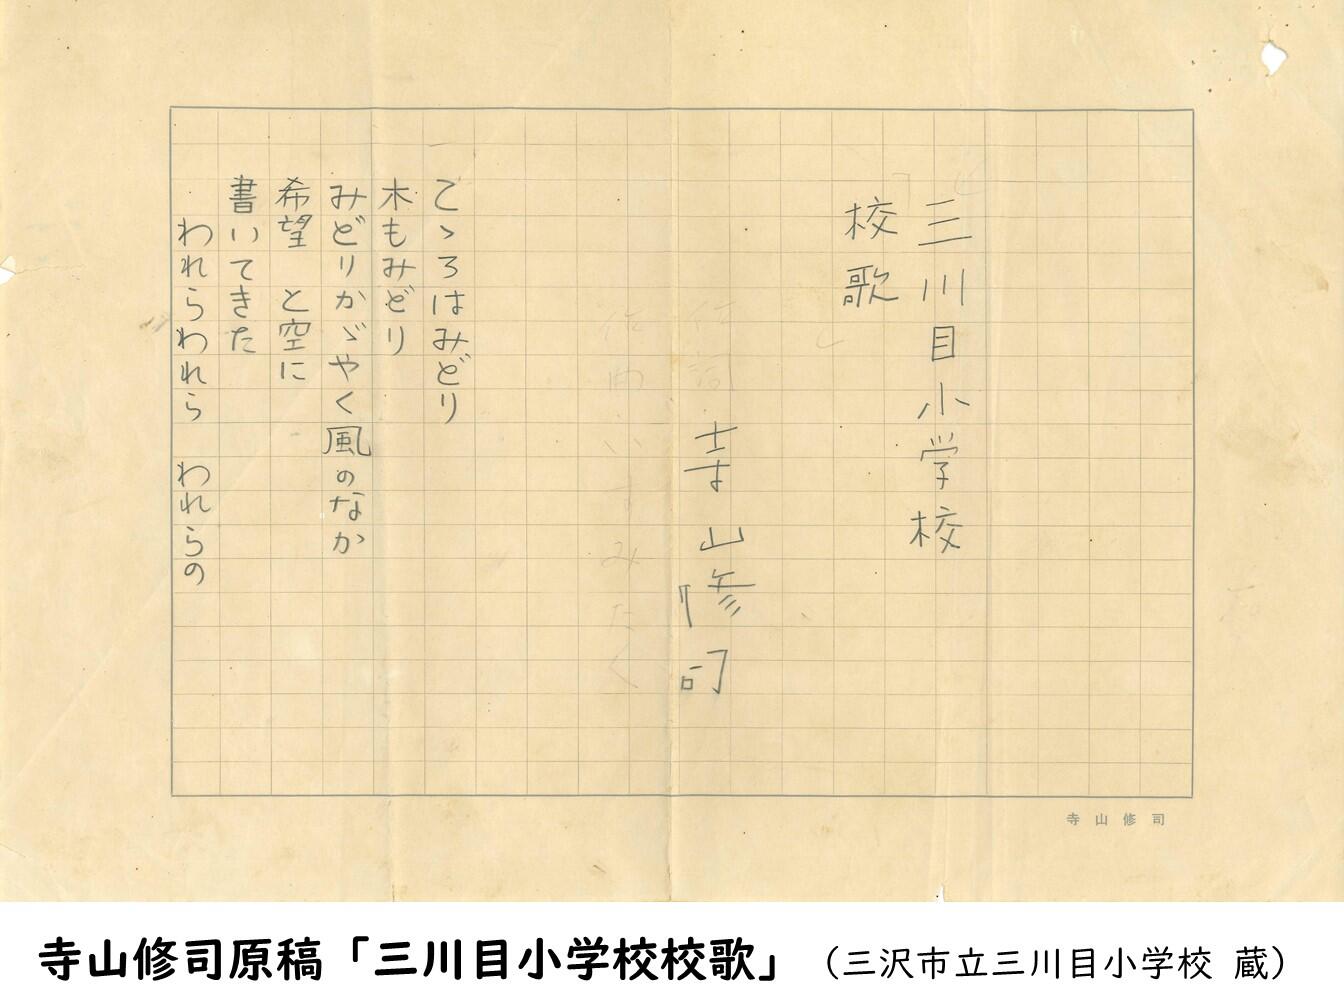 三川目小学校
校歌
作詞 寺山修司
作曲 いずみたく
こゝろはみどり
木もみどり
みどりかゞやく風のなか
希望 と空に
書いてきた
われらわれら われらの
寺山修司
寺山修司原稿「三川目小学校校歌」（三沢市立三川目小学校 蔵）